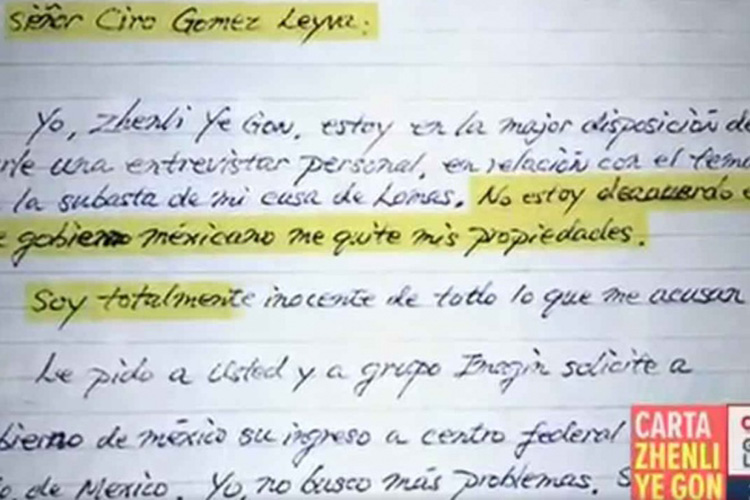 Señor Ciro Gomez Leyva:
Yo, Zhenli Ye Gon, estoy en la major disposición de
rle una entrevistar personal, en relación con el tema
la subasta de mi casa de Lomas. No estoy deacuerdo
gobierno méxicano me quite mis propiedades.
Soy totalmente inocente de todo lo que me acusan
Le pido a Usted y a grupo Imagin solicite a
bierno de méxico su ingreso a centro federal
de Mexico. Yo, no busco más problemas. S
CARTA
ZHENLI
YE GON
C
G
L